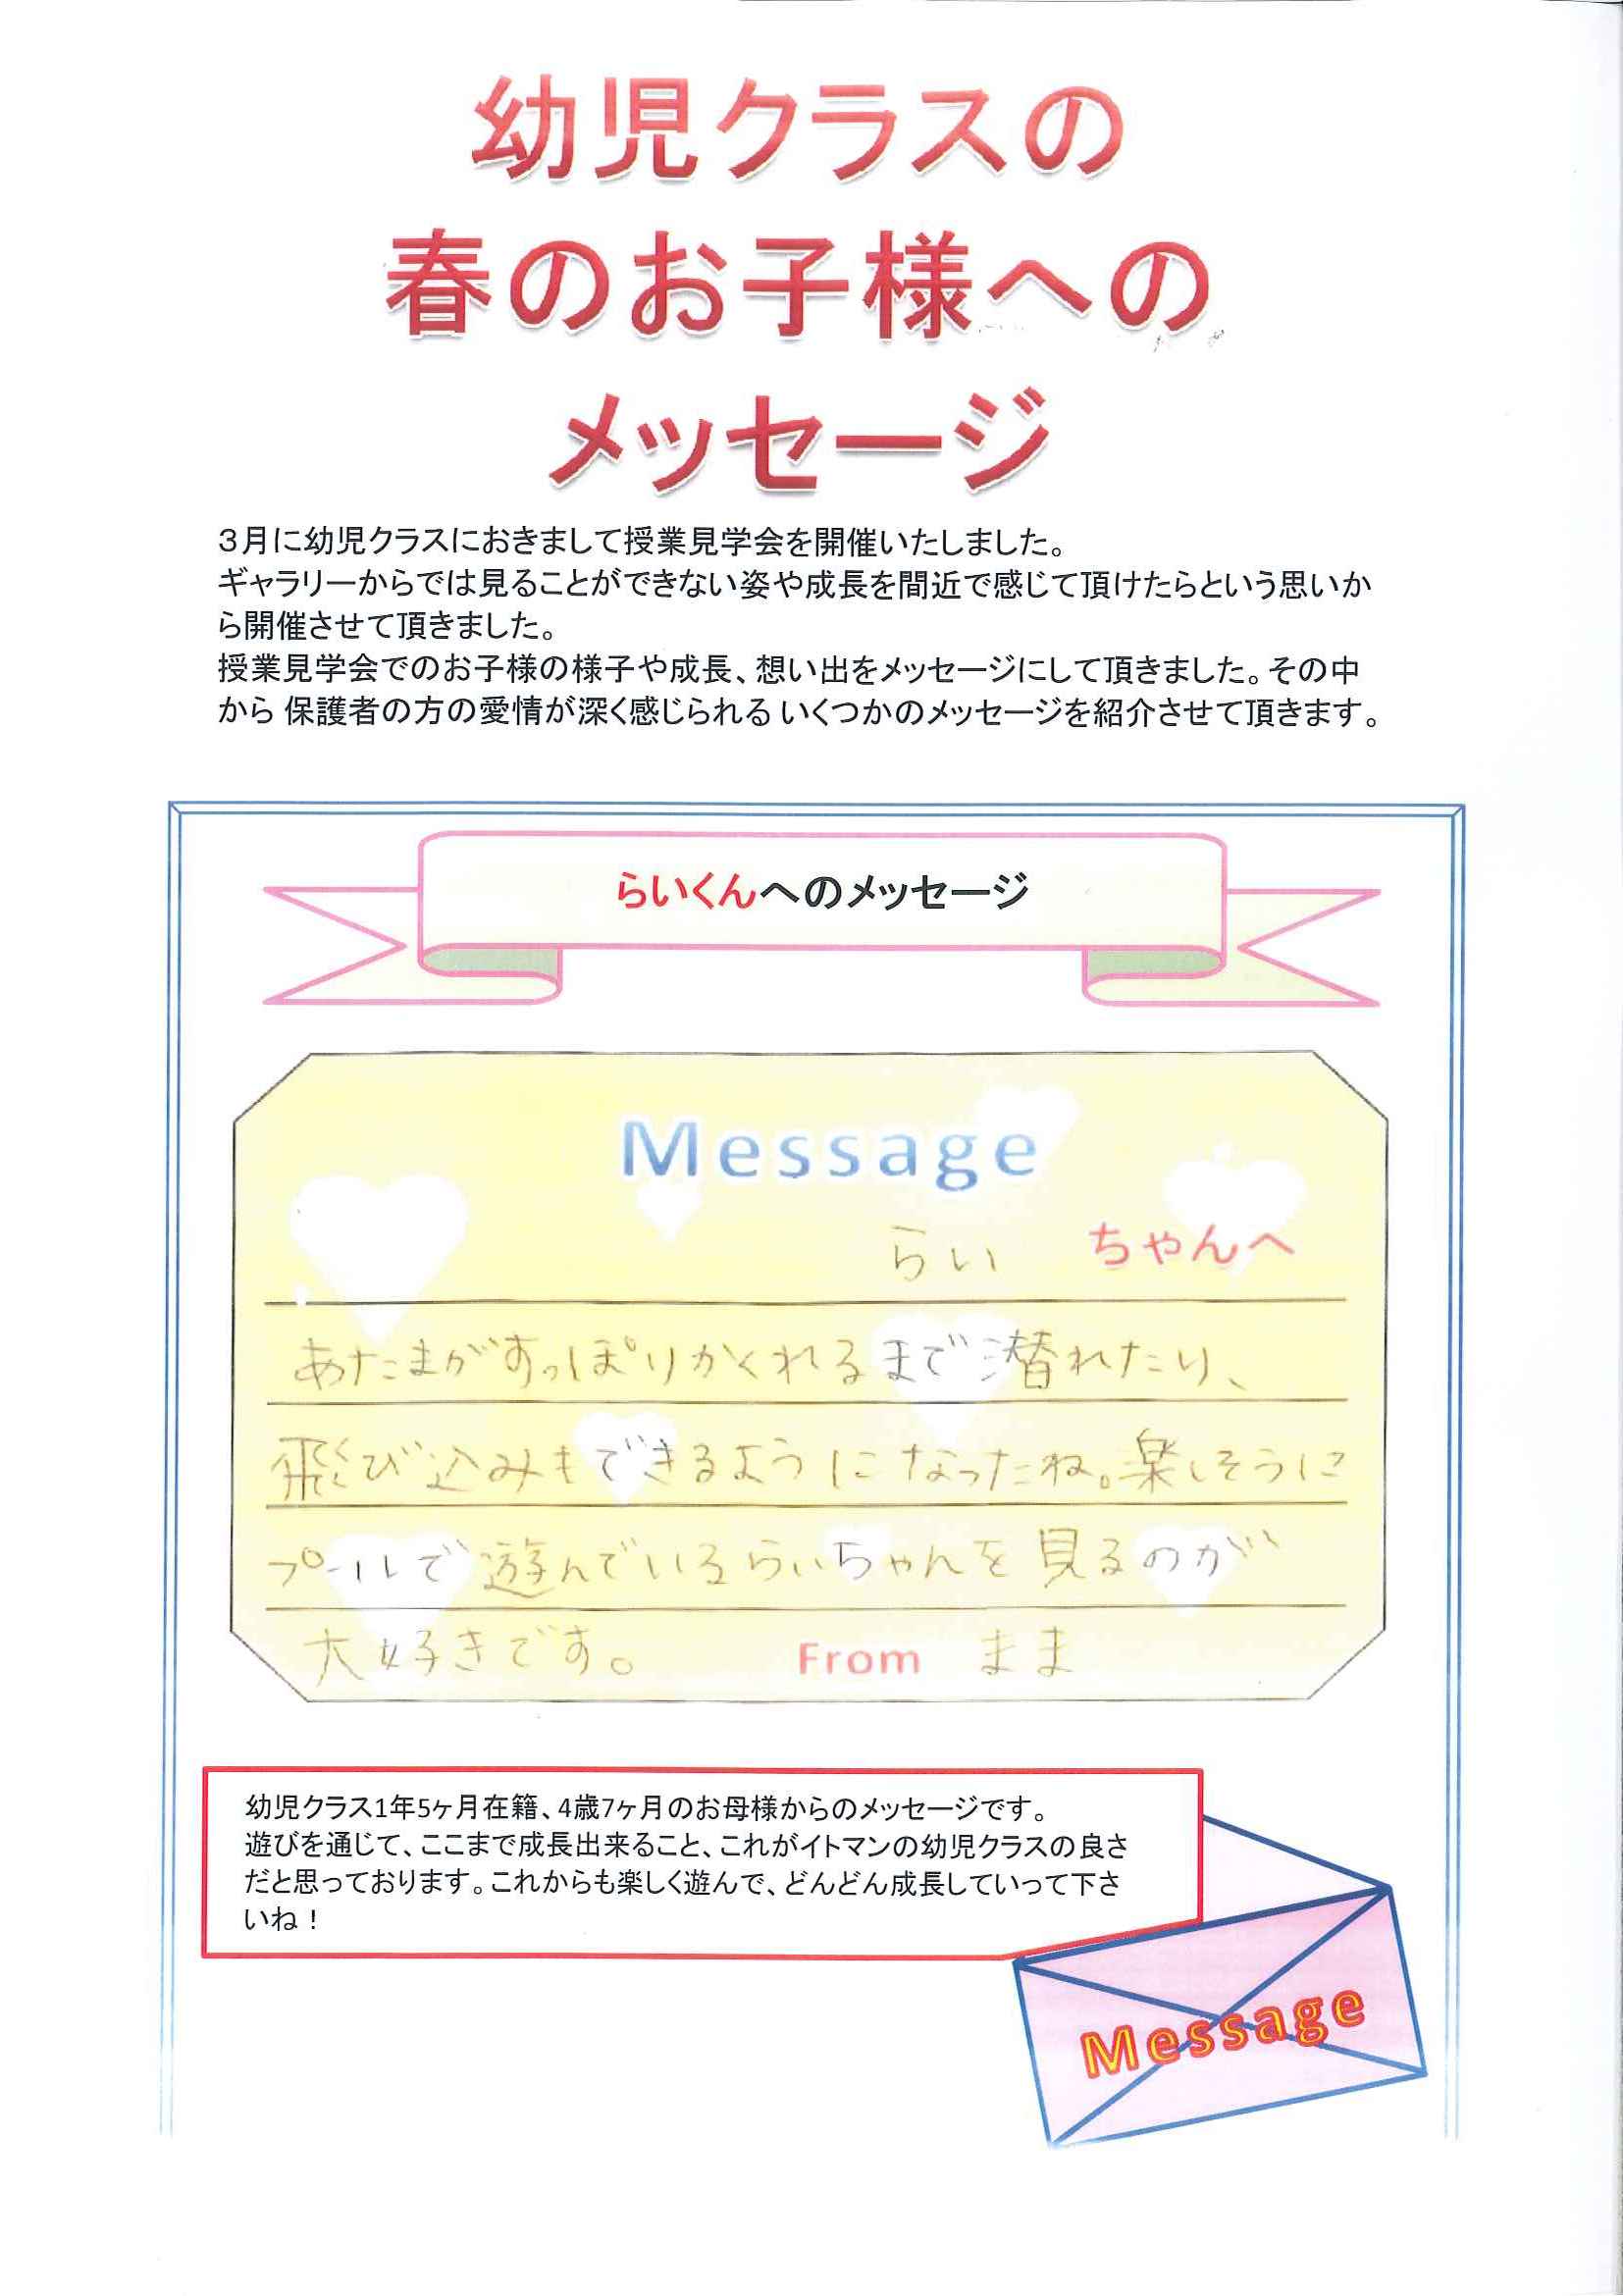 幼児クラスの
春のお子様への
メッセージ
３月に幼児クラスにおきまして授業見学会を開催いたしました。
ギャラリーからでは見ることができない姿や成長を間近で感じて頂けたらという思いか
ら開催させて頂きました。
授業見学会でのお子様の様子や成長、想い出をメッセージにして頂きました。その中
から 保護者の方の愛情が深く感じられる いくつかのメッセージを紹介させて頂きます。
らいくんへのメッセージ
Message
らい ちゃんへ
あたまがすっぽりかくれるまで潜れたり、
飛び込みもできるようになったね。楽しそうに
プールで遊んでいるらいちゃんを見るのが
大好きです。 From まま
幼児クラス1年5ヶ月在籍、4歳7ヶ月のお母様からのメッセージです。
遊びを通じて、ここまで成長出来ること、これがイトマンの幼児クラスの良さ
だと思っております。これからも楽しく遊んで、どんどん成長していって下さ
いね！
Message